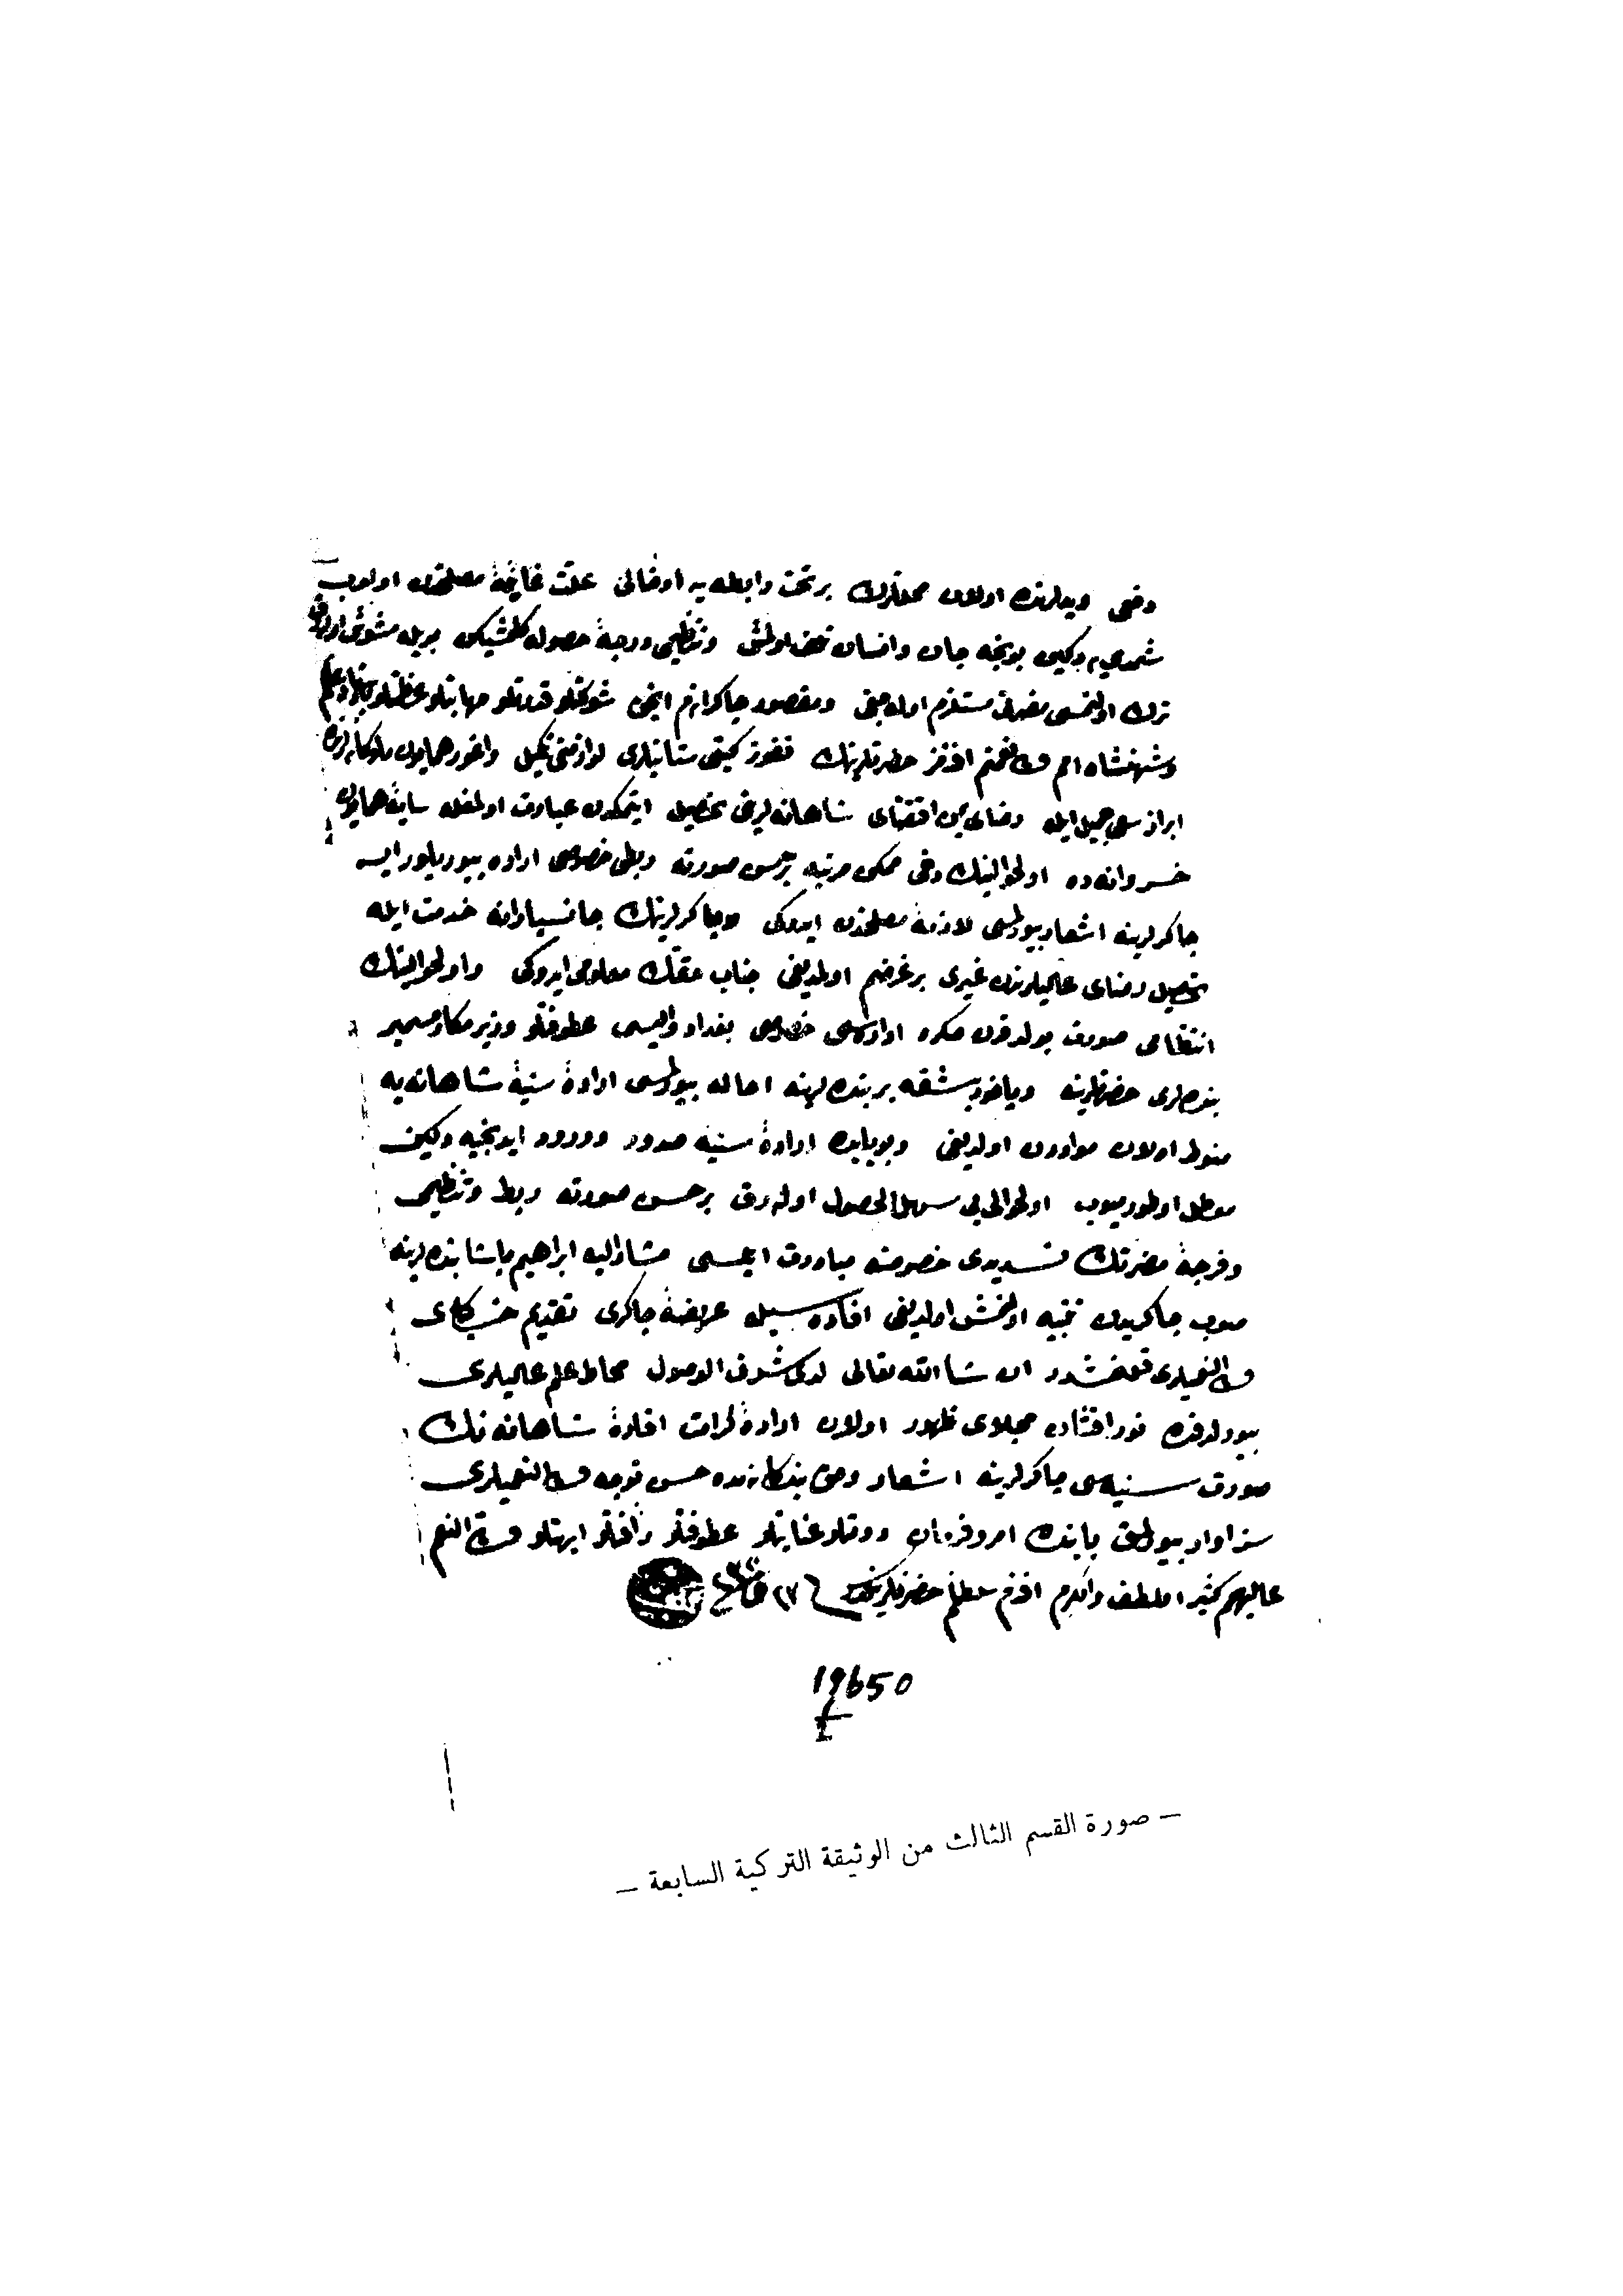 دخی ویدلرنده اولان محللرك بر تحت رابطه یه ادخالی علت غائیهٔ مصلحتدن اولوب
بونجه جان وانسان تلف اولمش وتنظیمی درجهٔ حصوله كلمشیكن بویله مشوش
ترك اولنمسی مضراتی مستلزم اوله جغی ومقصود چاكرانم انجق شوكتلو قدرتلو مهابتلو عظمتلو
وشهنشاه اعظم ولی النعمتم افندمز حضرتلرینك نفوذ كیتی ستانیلری لوازمنی تكمیل واغور همایون ملوكانه لرنده
ابراز سعی جمیل ایله رضای یمن اقتضای شاهانه لرینی تحصیل ایتمكدن عبارت اولمغله سایهٔ همایون
خسروانه ده اول حوالینك دخی ممكن مرتبه بر حسن صورته ربطی خصوصی اراده بیوریلور ایسه
چاكرلرینه اشعار بیورلمسی لازمهٔ مصلحتدن ایدوكی وچاكرلرینك جانسپارانه خدمت ایله
تحصیل رضای عالیلرندن غیری بر غرضم اولمدیغی جناب حقك معلومی ایدوكی واول حوالینك
انتظامی صورت بولدقدن صكره اداره سی خصوصی بغداد والیسی عطوفتلو وزیر مكارمسمیر
بنده لری حضرتلرینه ویاخود بشقه بر بنده لرینه احاله بیورلمسی ارادهٔ سنیهٔ شاهانه یه
منوط اولان موادن اولدیغی وبوبابده ارادهٔ سنیه صدور وورود ایدنجیه دكین
معطل اوطورمیوب اول حوالی یی سهل الحصول اوله رق بر حسن صورته ربط وتنظیمی
وفرجهٔ مضرتك تسدیدی خصوصنه مبادرت ایلمسی مشار الیه ابراهیم پاشا بنده لرینه
صوب چاكریدن تنبیه اولنمش اولدیغی افاده سیله عریضهٔ چاكری تقدیم خاكپای
ولی النعمیلری قلنمشدر ان شا الله تعالی لدی شرف الوصول محاط علم عالیلری
بیورلدقده نور افشان مجلای ظهور اولان ارادهٔ كرامت افادهٔ شاهانه نك
صورت سنیه سی چاكرلرینه اشعار وحق بندكانه مده حسن توجه ولی النعمیلری
سزاوار بیورلمق بابنده امر وفرمان دولتلو عنایتلو عطوفتلو رأفتلو ابهتلو ولی النعم
كثیر اللطف والكرم افندم سلطانم حضرتلرینكدر
19650
– صورة القسم الثالث من الوثيقة التركية السابعة –